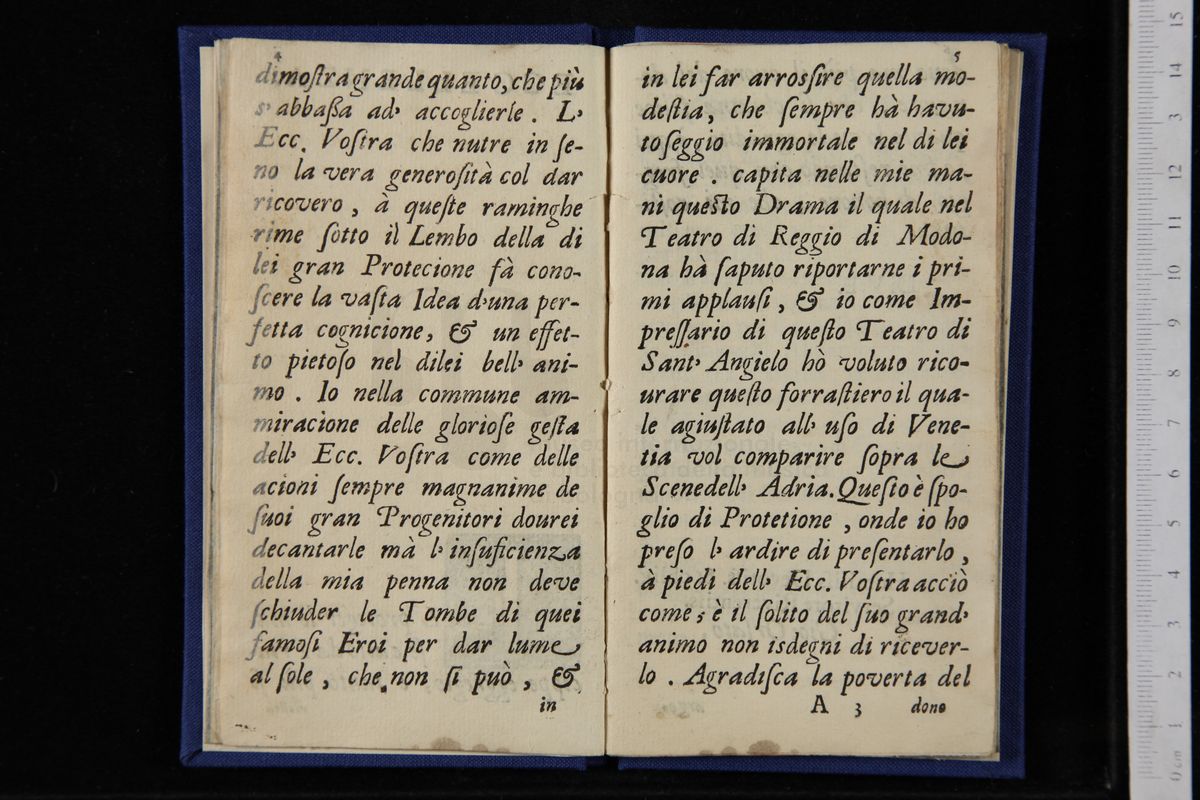 4
dimoſtra grande quanto, che più
s' abbaſſa ad' accoglierle. L'
Ecc. Voſtra che nutre in ſe-
no la vera generoſità col dar
ricovero, à queſte raminghe
rime ſotto il Lembo della di
lei gran Protecione fà cono-
ſcere la vaſta Idea d'una per-
fetta cognicione, & un effet-
to pietoſo nel dilei bell' ani-
mo. Io nella commune am-
miracione delle glorioſe geſta
dell' Ecc. Voſtra come delle
acioni ſempre magnanime de
ſuoi gran Progenitori dourei
decantarle mà l' inſuficienza
della mia penna non deve
ſchiuder le Tombe di quei
famoſi Eroi per dar lume
al ſole, che non ſi può, &
in
5
in lei far arroſſire quella mo-
deſtia, che ſempre hà havu-
to ſeggio immortale nel di lei
cuore. capita nelle mie ma-
ni queſto Drama il quale nel
Teatro di Reggio di Modo-
na hà ſaputo riportarne i pri-
mi applauſi, & io come Im-
preſſario di queſto Teatro di
Sant' Angielo hò voluto rico-
urare queſto forraſtiero il qua-
le agiuſtato all' uſo di Vene-
tia vol comparire ſopra le
Scene dell' Adria. Queſto è ſpo-
glio di Protetione, onde io ho
preſo l' ardire di preſentarlo,
à piedi dell' Ecc. Voſtra acciò
come, è il ſolito del ſuo grand'
animo non isdegni di ricever-
lo. Agradiſca la poverta del
A 3 dono
15
14
3
12
11
10
9
8
7
6
5
4
3
2
1
0 cm